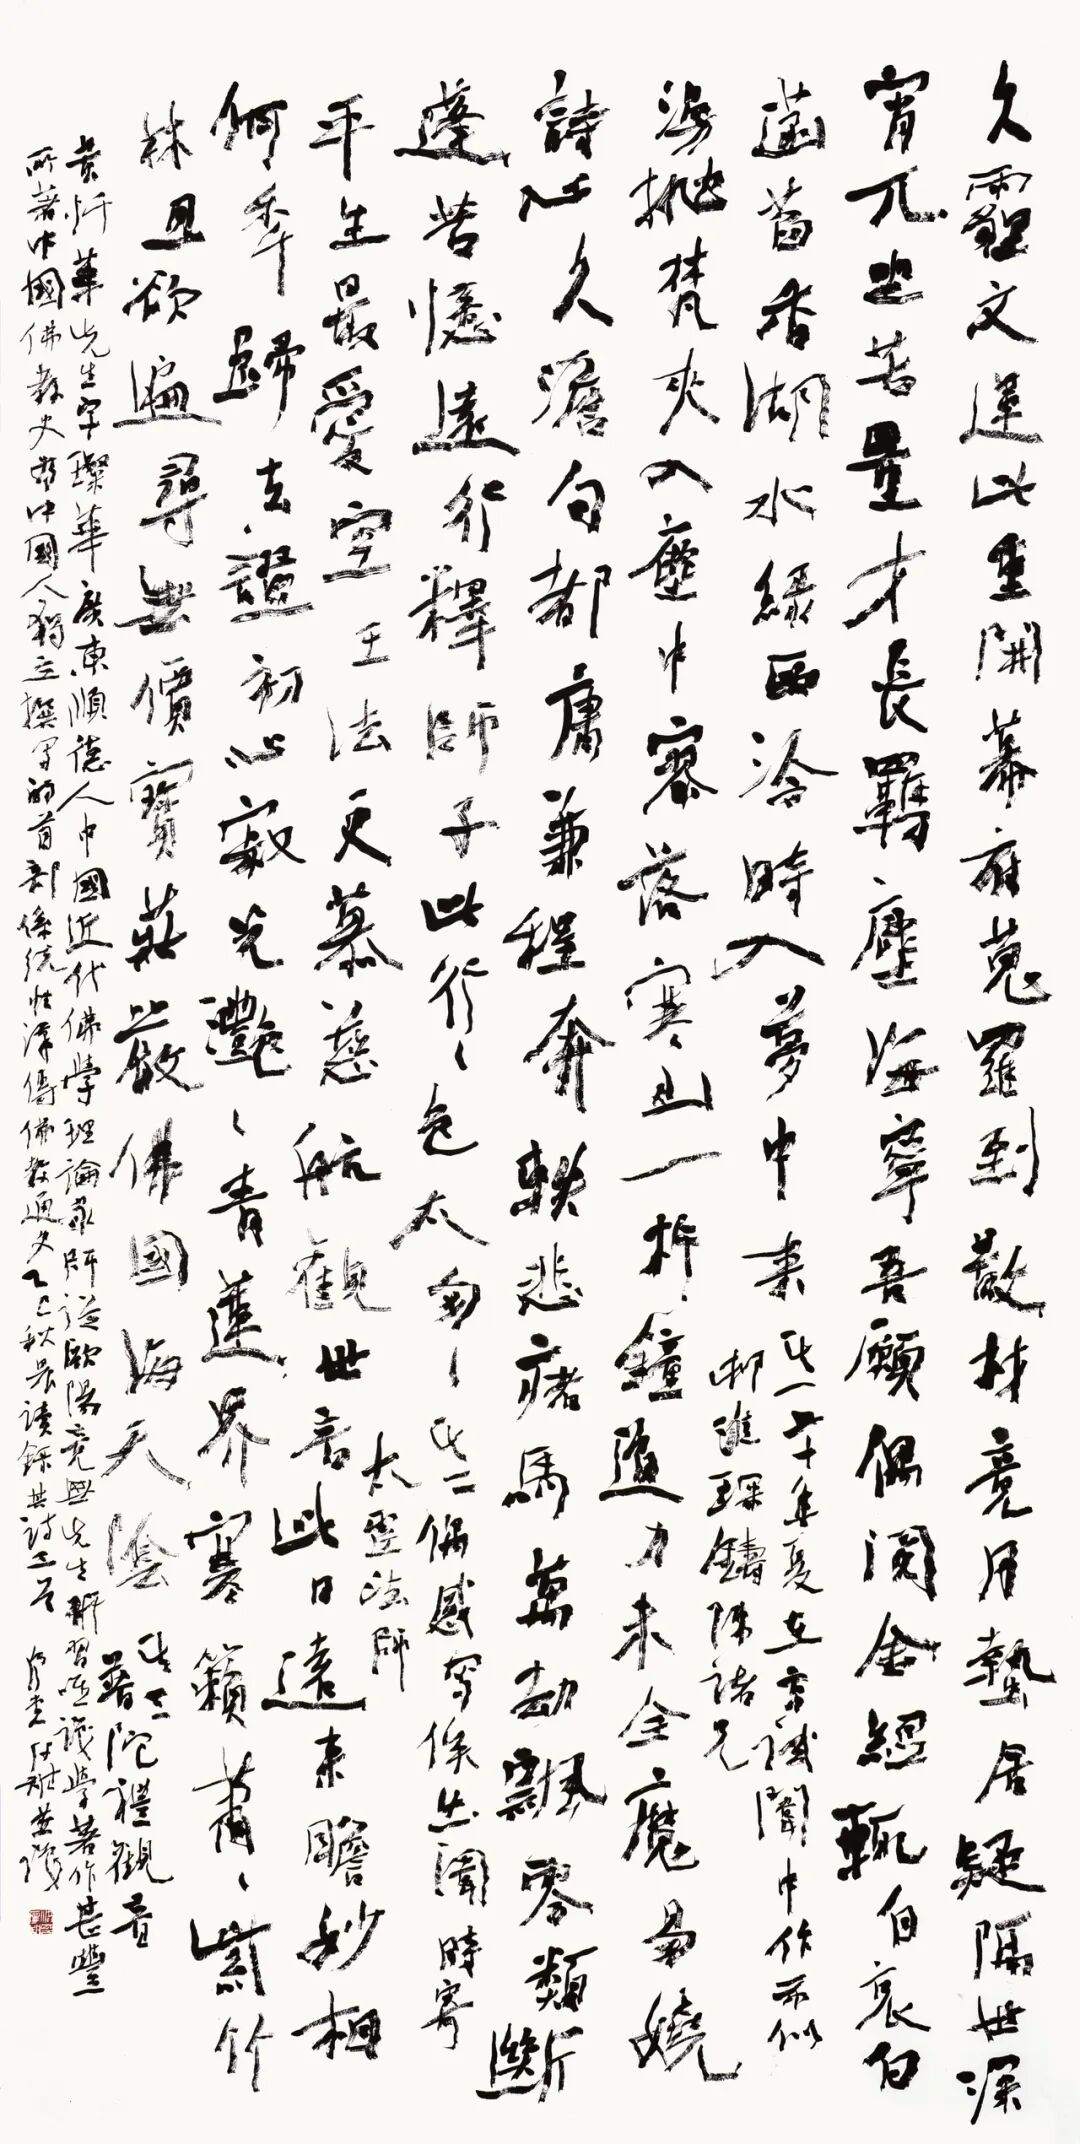 久霾文運此重開幕府蒐羅到散材竟月蟄居疑隔世深
宵兀坐苦量才長羈塵海寧吾願偶閱金經輒自哀白
菡萏香湖水綠西泠時入夢中來
其一廿年夏在京試闈中作示似
邨進琛鑄陳諸兄
湯抛梵夾入塵中寥落寒山一杵鐘道力未全魔易嬈
詩心久澹句都庸兼程奔軼悲疲馬萬劫飄零類斷
蓬苦憶遠行釋師子此行行色太匆匆
其二偶感寫俟出闈時寄
太虛法師
平生最愛空王法更慕慈航觀世音此日遠來瞻妙相
何年歸去證初心寂光灩灩青蓮界寒籟蕭蕭紫竹
林且欲遍尋無價寶莊嚴佛國海天陰
其三
普陀禮觀音
黃懺華先生字璨華廣東順德人中國近代佛學理論家師從歐陽竟無先生研習唯識學著作甚豐
所著中國佛教史為中國人獨立撰寫的首部系統性漢傳佛教通史乙巳秋晨讀錄其詩三首